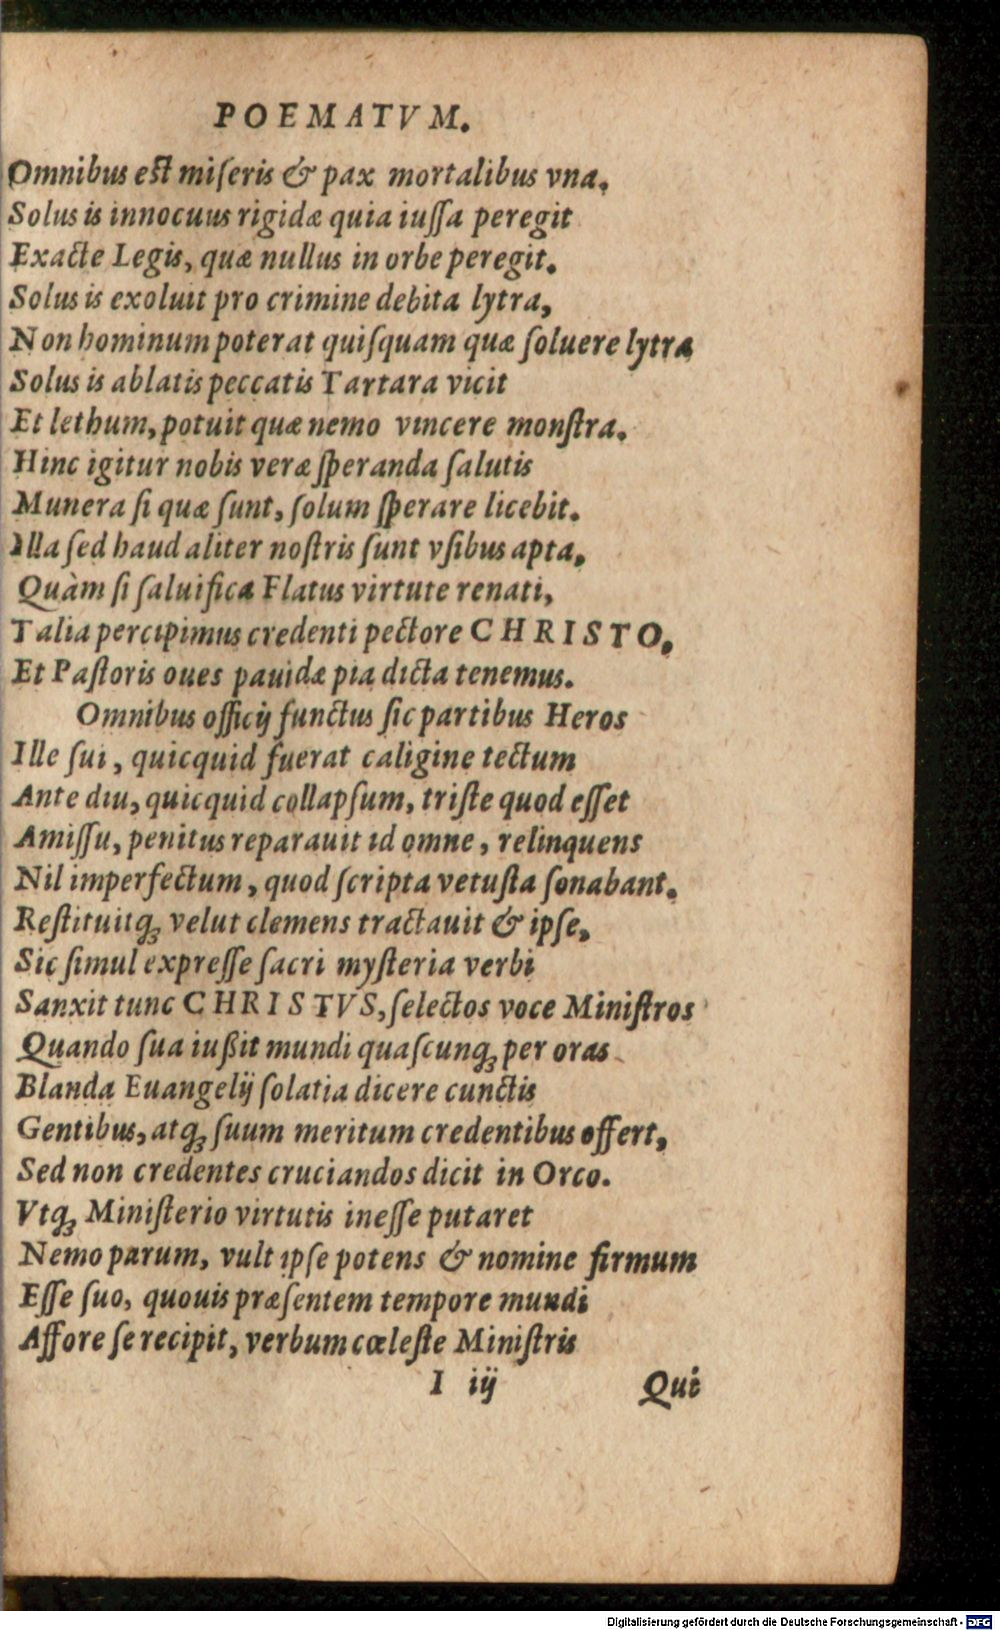 POEMATVM.
Omnibus est miſeris & pax mortalibus vna,
Solus is innocuus rigidæ quia iuſſa peregit
Exacte Legis, quæ nullus in orbe peregit.
Solus is exoluit pro crimine debita lytra,
Non hominum poterat quiſquam quæ ſoluere lytra
Solus is ablatis peccatis Tartara vicit
Et lethum, potuit quæ nemo vincere monſtra.
Hinc igitur nobis veræ ſperanda ſalutis
Munera ſi quæ ſunt, ſolum ſperare licebit.
Illa ſed haud aliter noſtris ſunt vſibus apta,
Quàm ſi ſaluifica Flatus virtute renati,
Talia percipimus credenti pectore CHRISTO,
Et Paſtoris oues pauidæ pia dicta tenemus.
Omnibus officij functus ſic partibus Heros
Ille ſui, quicquid fuerat caligine tectum
Ante diu, quicquid collapſum, triſte quod eſſet
Amiſſu, penitus reparauit id omne, relinquens
Nil imperfectum, quod ſcripta vetuſta ſonabant.
Reſtituitqꝫ velut clemens tractauit & ipſe,
Sic ſimul expreſſe ſacri myſteria verbi
Sanxit tunc CHRISTVS, ſelectos voce Miniſtros
Quando ſua iußit mundi quaſcunqꝫ per oras
Blanda Euangelij ſolatia dicere cunctis
Gentibus, atqꝫ ſuum meritum credentibus offert,
Sed non credentes cruciandos dicit in Orco.
Vtqꝫ Miniſterio virtutis ineſſe putaret
Nemo parum, vult ipſe potens & nomine firmum
Eſſe ſuo, quouis præſentem tempore mundi
Affore ſe recipit, verbum cœleſte Miniſtris
I iij Qui
Digitalisierung gefördert durch die Deutsche Forschungsgemeinschaft - DFG